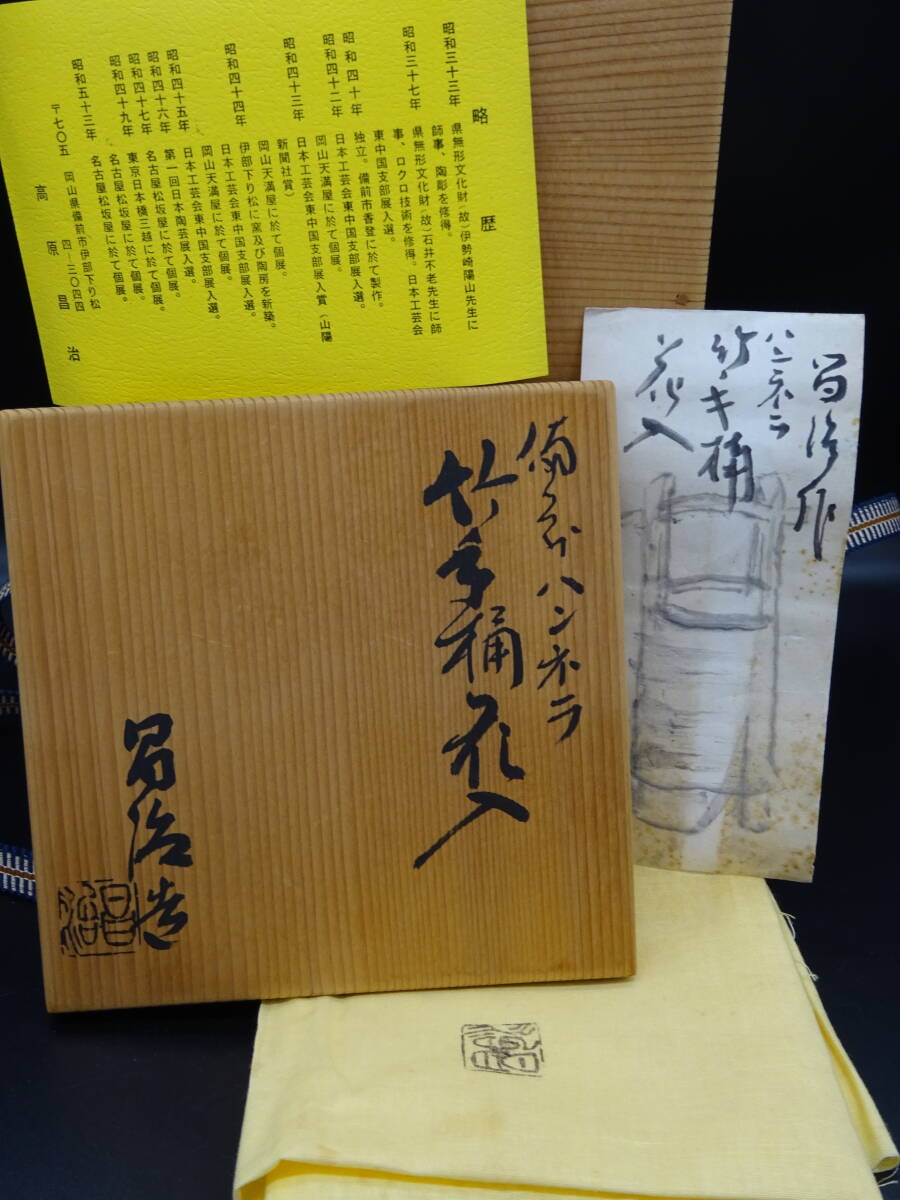 略歴
昭和三十三年 県無形文化財(故)伊勢崎陽山先生に
師事、陶彫を修得。
昭和三十七年 県無形文化財(故)石井不老先生に師
事、ロクロ技術を修得。日本工芸会
東中国支部展入選。
昭和四十年 独立。備前市香登に於て製作。
昭和四十二年 日本工芸会東中国支部展入選。
岡山天満屋に於て個展。
昭和四十三年 日本工芸会東中国支部展入賞(山陽
新聞社賞)
岡山天満屋に於て個展。
昭和四十四年 伊部下り松に窯及び陶房を新築。
日本工芸会東中国支部展入選。
岡山天満屋に於て個展。
昭和四十五年 日本工芸会東中国支部展入選。
第一回日本陶芸展入選。
昭和四十六年 名古屋松坂屋に於て個展。
昭和四十七年 東京日本橋三越に於て個展。
昭和四十九年 名古屋松坂屋に於て個展。
昭和五十三年 名古屋松坂屋に於て個展。
〒七〇五 岡山県備前市伊部下り松
四―三〇四四
高原昌治
昌治作
ハンネラ
竹手桶
花入
備前ハンネラ
竹手桶花入
昌治造
昌治